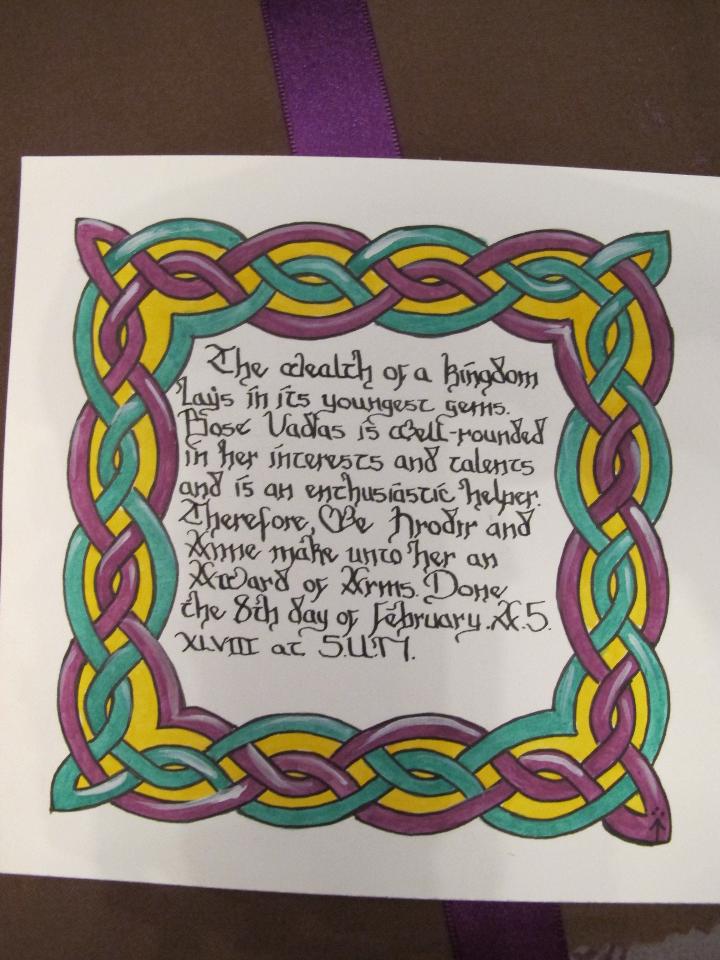 The Wealth of a kingdom
Lays in its youngest gems.
Hose Vadas is Well-rounded
in her interests and talents
and is an enthusiastic helper.
Therefore, We Hrodir and
Anne make unto her an
Award of Arms. Done
the 8th day of February. A.S.
XLVIII at S.U.N.